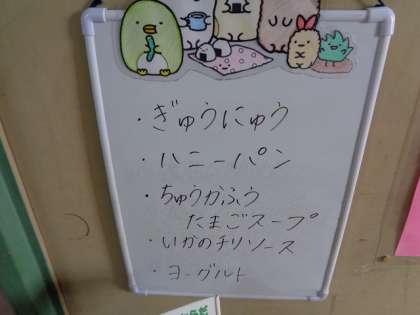 ・ぎゅうにゅう
・ハニーパン
・ちゅうかふう
たまごスープ
・いかのチリソース
・ヨーグルト